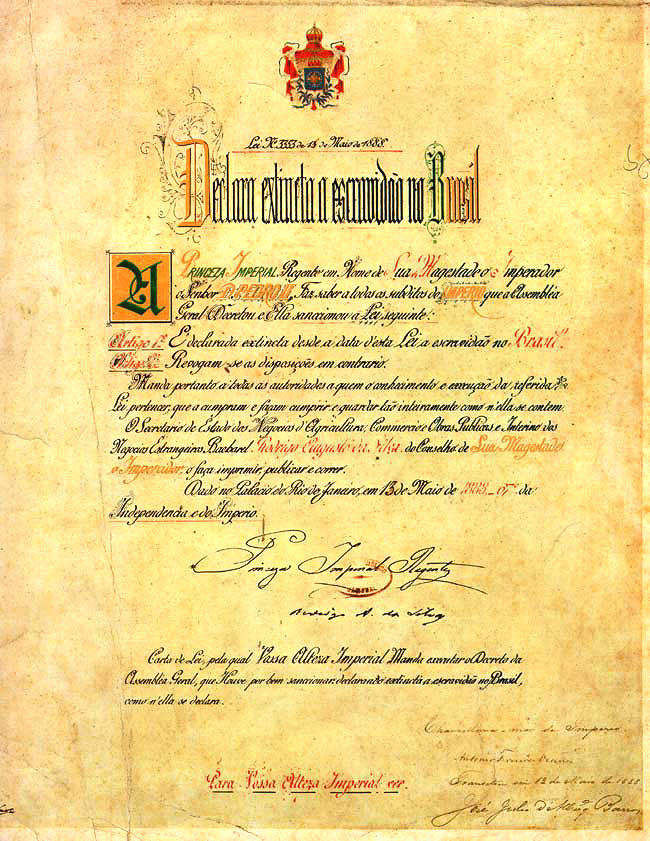 Lei Nº 3353 de 13 de Maio de 1888.
Declara extincta a escravidão no Brasil
A PRINCEZA IMPERIAL Regente em Nome de Sua Magestade o Imperador
o Senhor D. PEDRO II, Faz saber a todos os subditos do IMPERIO que a Assembléa
Geral Decretou e Ella sanccionou a Lei seguinte:
Artigo 1º É declarada extincta desde a data d'esta Lei a escravidão no Brasil.
Artigo 2º Revogam-se as disposições em contrario.
Manda portanto a todas as autoridades a quem o conhecimento e execução da referida
Lei pertencer, que a cumpram e façam cumprir e guardar tão inteiramente como n'ella se contem.
O Secretario de Estado dos Negocios d'Agricultura, Commercio e Obras Publicas e Interino dos
Negocios Estrangeiros Bacharel Rodrigo Augusto da Silva do Conselho de Sua Magestade
o Imperador, o faça imprimir, publicar e correr.
Dado no Palacio do Rio de Janeiro, em 13 de Maio de 1888 67º da
Independencia e do Imperio.
Princeza Imperial Regente
Rodrigo A. da Silva
Carta de Lei, pela qual Vossa Alteza Imperial Manda executar o Decreto da
Assembléa Geral, que Houve por bem sanccionar declarando extincta a escravidão no Brasil,
como n'ella se declara.
Para Vossa Alteza Imperial ver.
Chancellaria-mór do Imperio
Antonio Ferreira Vianna
Transitou em 13 de Maio de 1888
José Julio d'Albuq. Barros